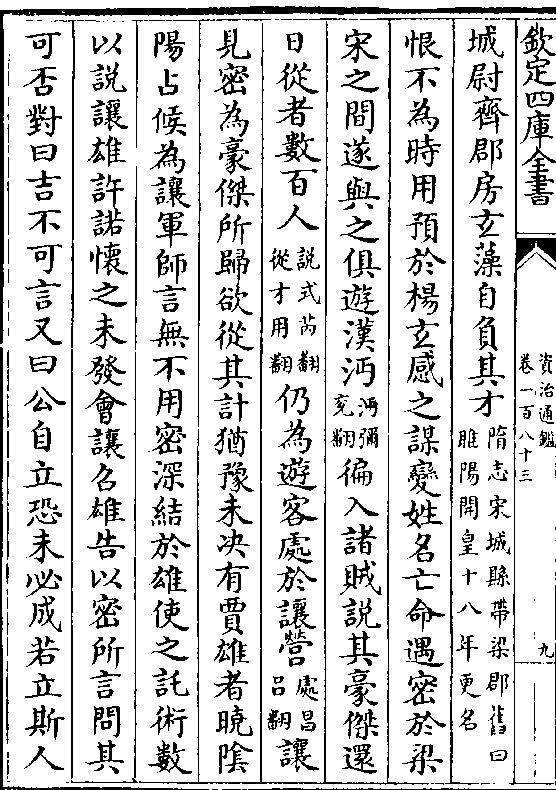 欽定四庫全書
資治通鑑
卷一百八十三
九
城尉齊郡房玄藻自負其才隋志宋城縣帶梁郡舊曰
睢陽開皇十八年更名
恨不為時用預於楊玄感之謀變姓名亡命遇密於梁
宋之間遂與之俱遊漢沔沔彌
兗翻徧入諸賊說其豪傑還
日從者數百人說式芮翻
從才用翻仍為遊客處於讓營處昌
呂翻讓
見密為豪傑所歸欲從其計猶豫未决有賈雄者曉陰
陽占候為讓軍師言無不用密深結於雄使之託術數
以說讓雄許諾懷之未發會讓召雄告以密所言問其
可否對曰吉不可言又曰公自立恐未必成若立斯人